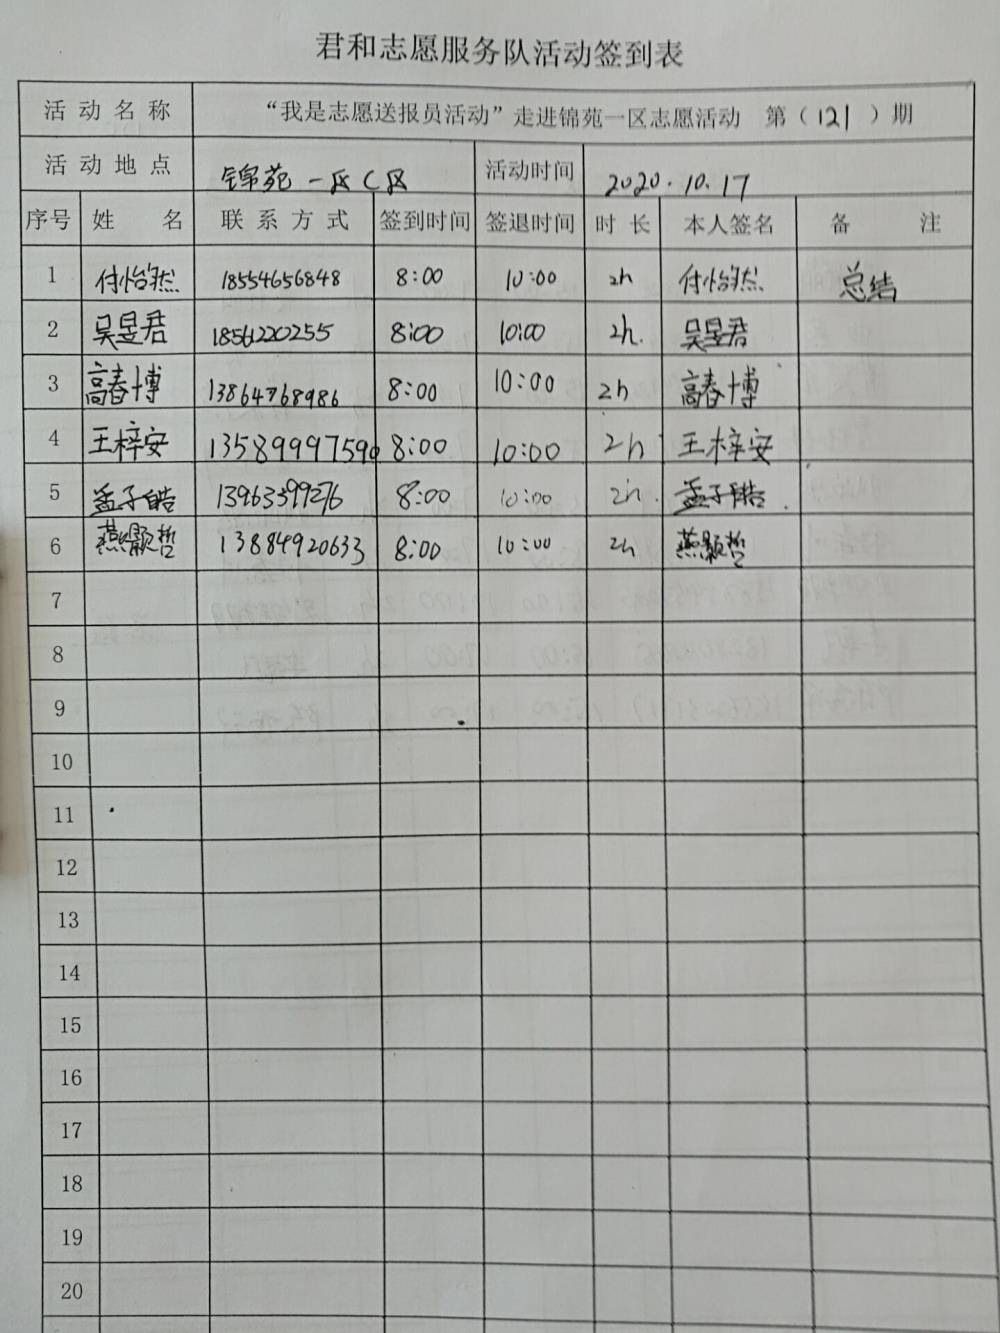 君和志愿服务队活动签到表
活动名称 “我是志愿送报员活动”走进锦苑一区志愿活动 第（121）期
活动地点 锦苑一区C区 活动时间 2020.10.17
序号 姓名 联系方式 签到时间 签退时间 时长 本人签名 备注
1 付怡然 18554656848 8:00 10:00 2h 付怡然 总结
2 吴昱君 18562202555 8:00 10:00 2h. 吴昱君
3 高春博 13864768986 8:00 10:00 2h 高春博
4 王梓安 13589997590 8:00 10:00 2h 王梓安
5 孟子皓 13963399276 8:00 10:00 2h. 孟子皓.
6 燕颢哲 13884920633 8:00 10:00 2h 燕颢哲
7
8
9
10
11
12
13
14
15
16
17
18
19
20